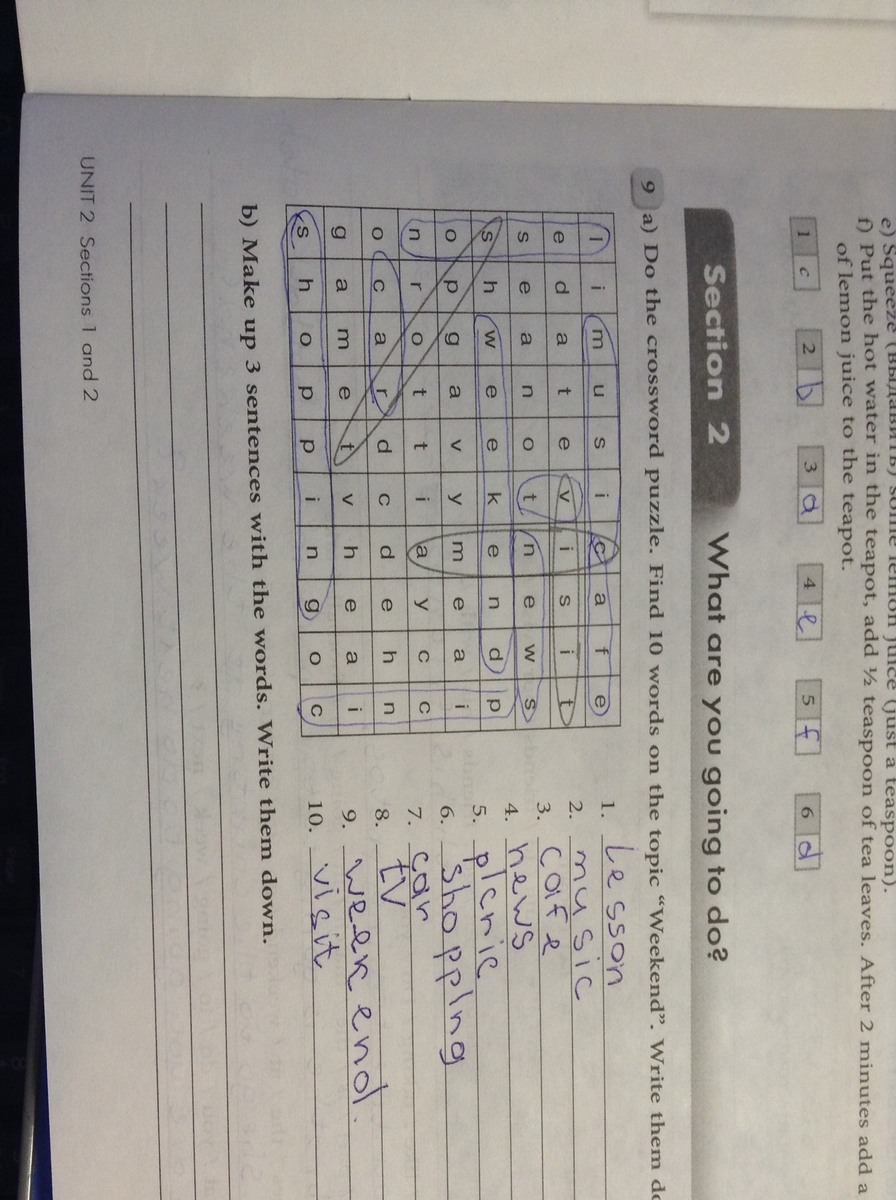 e) Squeeze (выдавить) some lemon juice (just a teaspoon).
f) Put the hot water in the teapot, add ½ teaspoon of tea leaves. After 2 minutes add a
of lemon juice to the teapot.
1 c 2 b 3 a 4 e 5 f 6 d
Section 2 What are you going to do?
9 a) Do the crossword puzzle. Find 10 words on the topic “Weekend”. Write them do
l i m u s i c a f e
e d a t e v i s i t
s e a n o t n e w s
s h w e e k e n d p
o p g a v y m e a i
n r o t t i a y c c
o c a r d c d e h n
g a m e t v h e a i
s h o p p i n g o c
1. Lesson
2. music
3. cafe
4. news
5. picnic
6. shopping
7. car
8. tv
9. weekend.
10. visit
b) Make up 3 sentences with the words. Write them down.
UNIT 2 Sections 1 and 2